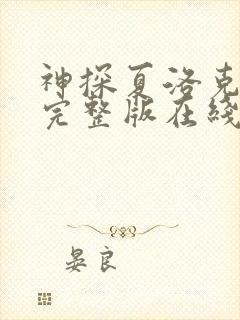 神探夏洛克
完整版在线
晏良